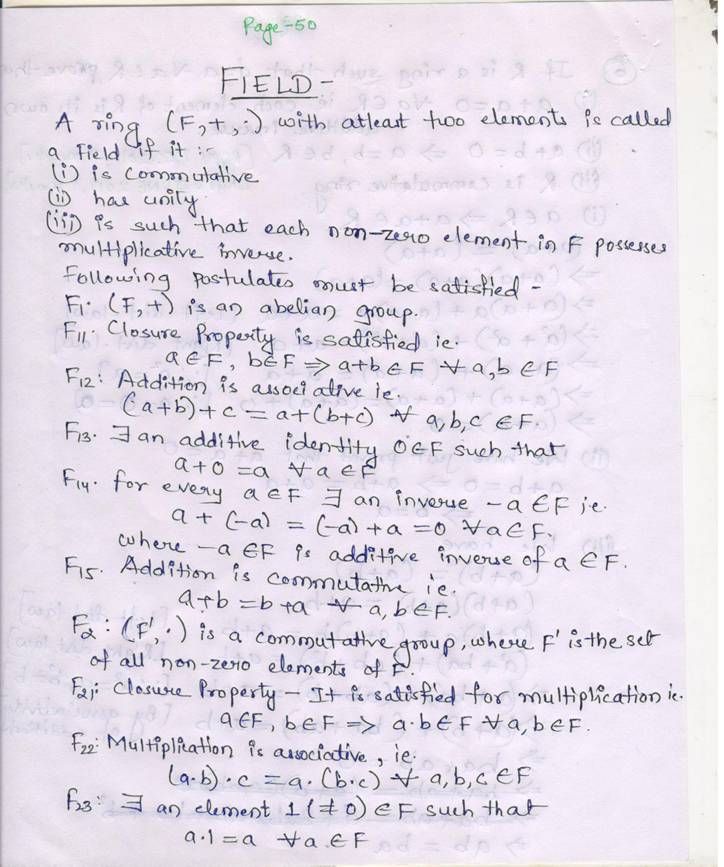 Page-50
FIELD-
A ring (F,+,·) with atleast two elements is called
a Field if it :-
(i) is commutative
(ii) has unity
(iii) is such that each non-zero element in F possesses
multiplicative inverse.
Following postulates must be satisfied -
F1. (F,+) is an abelian group.
F11. Closure Property is satisfied ie.
a∈F, b∈F ⇒ a+b∈F ∀ a,b∈F
F12: Addition is associative ie.
(a+b)+c = a+(b+c) ∀ a,b,c ∈F.
F13. ∃ an additive identity 0∈F such that
a+0 =a ∀a∈F
F14. for every a∈F ∃ an inverse -a∈F ie.
a+(-a) = (-a)+a =0 ∀a∈F.
where -a∈F is additive inverse of a∈F.
F15. Addition is commutative ie.
a+b =b+a ∀ a,b∈F.
F2: (F',·) is a commutative group, where F' is the set
of all non-zero elements of F.
F21: Closure Property - It is satisfied for multiplication ie.
a∈F, b∈F ⇒ a·b∈F ∀a,b∈F.
F22: Multiplication is associative, ie.
(a·b)·c =a·(b·c) ∀ a,b,c∈F
F23: ∃ an element 1(≠0)∈F such that
a·1=a ∀a∈F